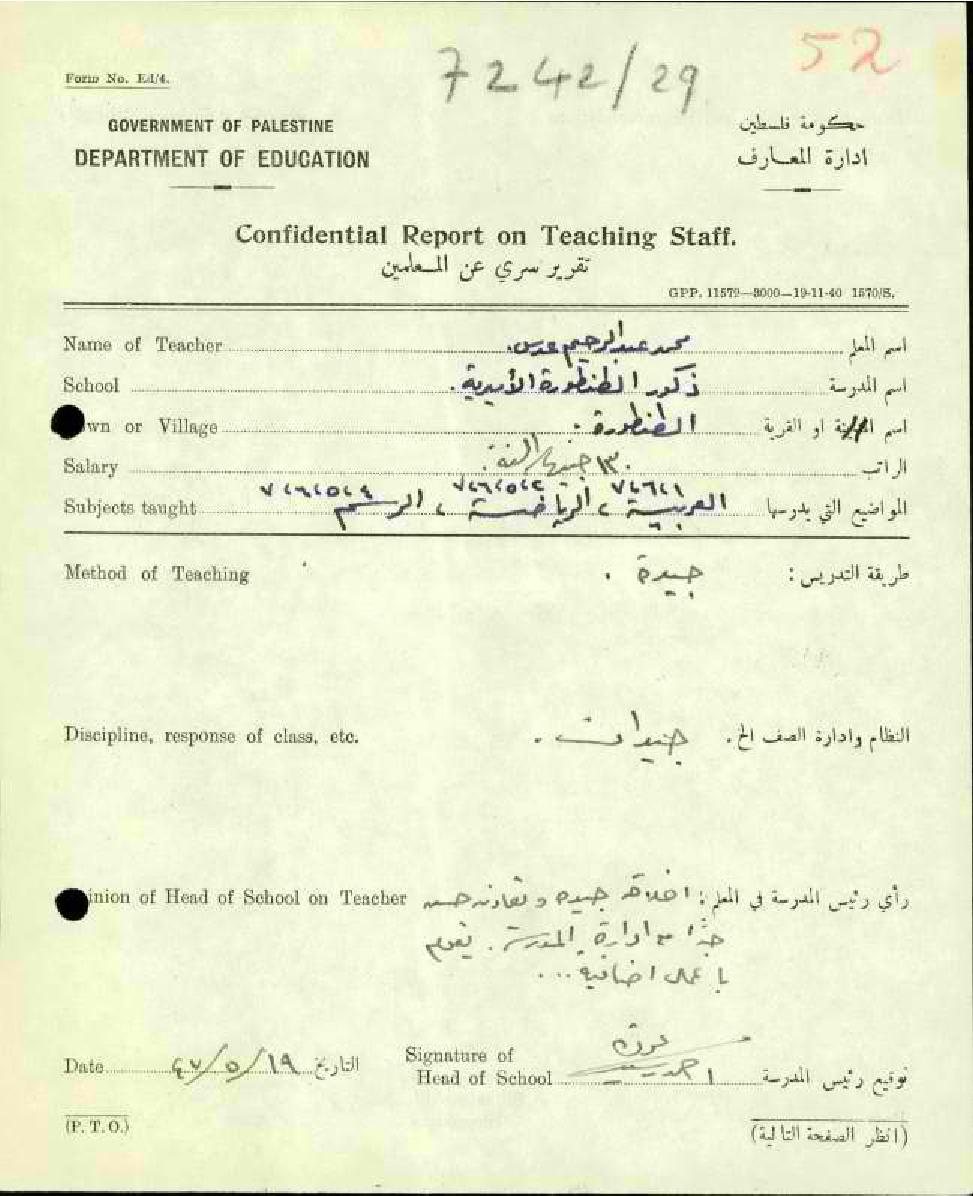 7242/29
52
Form No. Ed/4.
GOVERNMENT OF PALESTINE
حكومة فلسطين
DEPARTMENT OF EDUCATION
ادارة المعارف
Confidential Report on Teaching Staff.
تقرير سري عن المعلمين
GPP. 11579—3000—19-11-40 1570/S.
Name of Teacher محمد عبد الرحيم عدس اسم المعلم
School ذكور الطنطورة الأميرية. اسم المدرسة
wn or Village الطنطورة. اسم او القرية
Salary ١٣٠ الراتب
Subjects taught العربية، الرياضة، الرسم المواضيع التي يدرسها
Method of Teaching جيدة. طريقة التدريس:
Discipline, response of class, etc. جيدات. النظام وادارة الصف الخ.
inion of Head of School on Teacher رأي رئيس المدرسة في المعلم: اخلاقه جيده و تعاونه حسن
جدًا مع ادارة المدرسة. يقوم
باعمال اضافية...
Date ٤٧/٥/١٩ التاريخ
Signature of
Head of School احمد توقيع رئيس المدرسة
(P. T. O.)
(انظر الصفحة التالية)